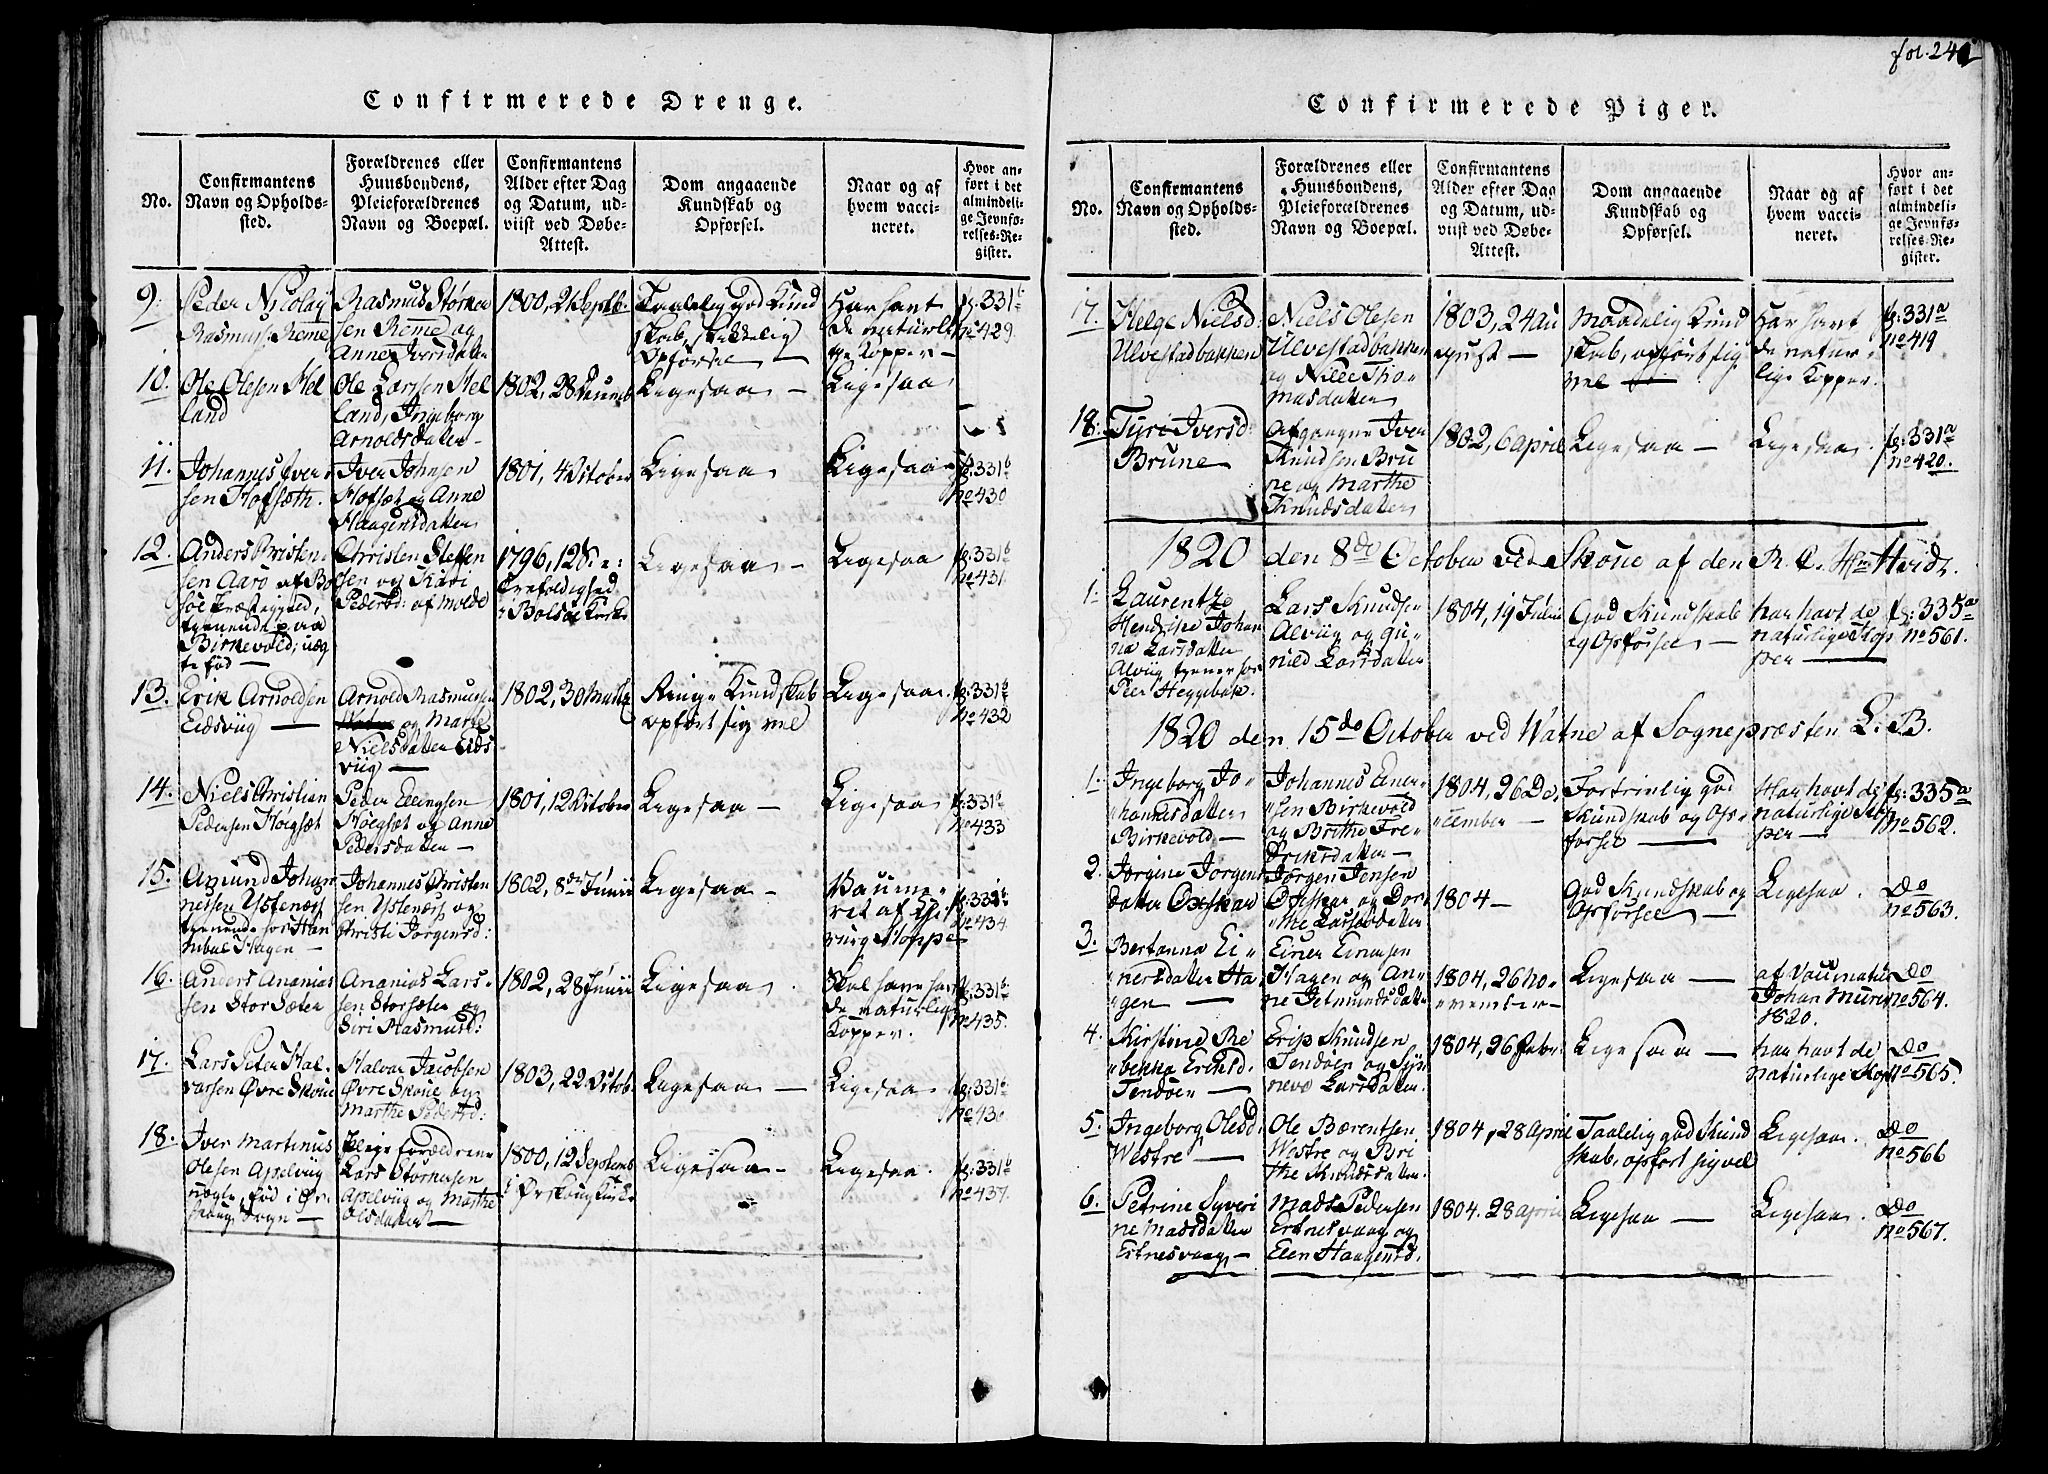 Confirmerede Drenge.
No.
Confirmantens
Navn og Opholds-
sted.
Forældrenes eller
Huusbondens,
Pleieforældrenes
Navn og Boepæl.
Confirmantens
Alder efter Dag
og Datum, ud-
viist ved Døbe-
Attest.
Dom angaaende
Kundskab og
Opførsel.
Naar og af
hvem vacci-
neret.
Hvor an-
ført i det
almindeli-
ge Jevnfø-
relses-Re-
gister.
9.
Peder Nicolay
Rasmuss: Reme
Rasmus Størker
sen Reme og
Anne Iversdatter
1800, 21 Septb.
Taalelig god Kund
skab, skikkelig
Opførsel
Har havt
de naturli
ge Kopper
pg: 331b
No 429.
10.
Ole Olesen Hel
land
Ole Larssen Hel
land, Ingeborg
Arnoldsdatter
1802, 28 Decemb
Ligesaa
Ligesaa
11.
Johannes Iver
sen Hofsæth.
Iver Johnsen
Hofsæt og Anne
Haagensdatter
1801, 4 October
Ligesaa
Ligesaa
pg: 331b
No 430
12.
Anders Christen
sen Aarø af Bol
søe Præstegield,
tjenende paa
Birkevold; uæg
te fød
Christen Steffen
sen og Kari
Pedersd: af Molde
1796, 12 S. e:
Trefoldighed
i Bolsøe Kirke
Ligesaa
Ligesaa
pg: 331b
No 431
13.
Erik Arnoldsen
Eidsviig
Arnold Rasmussen
og Marte
Nielsdatter Eids
viig
1802, 30 Martz
Ringe Kundskab
opført sig vel
Ligesaa.
pg: 331b
No 432
14.
Niels Christian
Pedersen Høigsæt
Peder Ellingsen
Høigsæt og Anne
Pedersdatter
1801, 12 October
Ligesaa
Ligesaa
pg: 331b
No 433
15.
Amund Johan
nessen Ystenæs
tjenende hos Han
nibal Hagen
Johannes Christen
sen Ystenæs og
Christi Jørgensd:
1802, 8de Junii
Ligesaa
Vaccine
ret af
Hoppe
pg: 331b
No 434
16.
Anders Ananias
sen Stor Sæter
Ananias Lars
sen Storsæter og
Siri Rasmusd:
1802, 28 Junii
Ligesaa
Skal have havt
de naturlige
Kopper.
pg: 331b
No 435.
17.
Lars Peter Hal
varsen Øvre Skoue
Halvar Jacobsen
Øvre Skoue og
Marthe Pedersd:
1803, 22 Octob.
Ligesaa
Ligesaa
pg: 331b
No 436
18.
Iver Martinus
Olesen Apelviig
uægte, fød i Ør
skoug Sogn
Pleieforældrene
Lars Størkersen
Apelviig og Marthe
Olsdatter
1800, 12 Septemb
i Ørskoug Kirke
Ligesaa
Ligesaa.
pg: 331b
No 437.
fol. 241
Confirmerede Piger.
No.
Confirmantens
Navn og Opholds-
sted.
Forældrenes eller
Huusbondens,
Pleieforældrenes
Navn og Boepæl.
Confirmantens
Alder efter Dag
og Datum, ud-
viist ved Døbe-
Attest.
Dom angaaende
Kundskab og
Opførsel.
Naar og af
hvem vacci-
neret.
Hvor an-
ført i det
almindeli-
ge Jevnfø-
relses-Re-
gister.
17.
Helge Nielsd:
Ulvestadbakken
Niels Olesen
Ulvestadbakken
og Nille Tho-
masdatter
1803, 24 Au
gust
Maadelig Kund
skab, opført sig
vel
Har havt
de natur
lige Kopper.
pg: 331a
No 419
18.
Tyri Iversd:
Brune
Afgangne Iver
Knudsen Bru
ne og Marthe
Knudsdatter
1802, 6 April
Ligesaa
Ligesaa.
pg: 331a
No 420.
1820 den 8de October ved Skoue af den R. C. Hr. Hvidt.
1.
Laurentze
Hendrike Johan
na Larsdatter
Alviig tjener hos
Peer Heggebak.
Lars Knudsen
Alviig og Gu
nild Larsdatter
1804, 19 Junii
God Kundskab
og Opførsel
har havt de
naturlige Kop
per
pg: 335a
No 561.
1820 den 15de October ved Watne af Sognepræsten L. B.
1.
Ingeborg Jo
hannesdatter
Birkevold
Johannes Einer
sen Birkevold
og Brithe Fre
driksdatter
1804, 26 De
cember
Fortrinlig god
Kundskab og Op
førsel
Har havt de
naturlige Kop
per
pg: 335a
No 562.
2.
Jørgine Jørgens
datter Oxskar
Jørgen Jensen
Oxskar og Dor
the Larsdatter
1804
God Kundskab og
Opførsel
Ligesaa.
Do
No 563.
3.
Bertanna Ei
nersdatter Ha
gen
Einer Einersen
Hagen og An
ne Jetmundsdatter
1804, 26 No
vember
Ligesaa
af Vaccinatør
Johan Muren
1820.
Do
No 564.
4.
Kirstine Re
bekka Eriksd.
Tendøen
Erik Knudsen
Tendøen og Syn
nevo Larsdatter
1804, 26 Febr.
Ligesaa
har havt de
naturlige Kop
Do
No 565.
5.
Ingeborg Olesd:
Westre
Ole Bærentsen
Westre og Bri
the Knudsdatter
1804, 28 April
Taalelig god Kund
skab, opført sig vel
Ligesaa.
Do
No 566
6.
Petrine Syveri
ne Madsdatter
Estnesvaag
Mads Pedersen
Estnesvaag og
Elen Haagensd.
1804. 28 April
Ligesaa
Ligesaa.
Do
No 567.